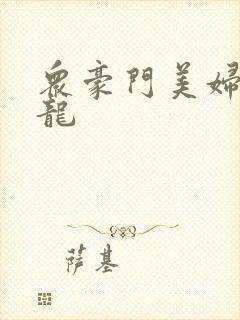 眾豪門美婦
龍
萨基